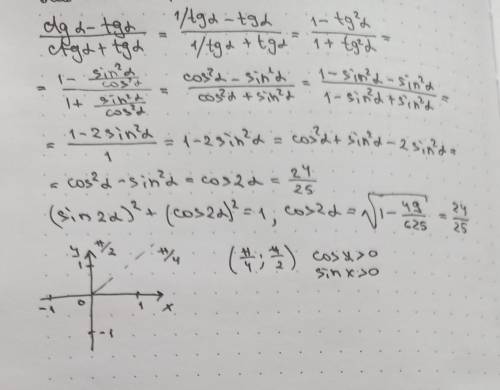 (ctgα - tgα)/(ctgα + tgα) = (1/tgα - tgα)/(1/tgα + tgα) = (1 - tg²α)/(1 + tg²α) =
= (1 - sin²α/cos²α)/(1 + sin²α/cos²α) = (cos²α - sin²α)/(cos²α + sin²α) = (1 - sin²α - sin²α)/(1 - sin²α + sin²α) =
= (1 - 2sin²α)/1 = 1 - 2sin²α = cos²α + sin²α - 2sin²α =
= cos²α - sin²α = cos2α = 24/25
(sin2α)² + (cos2α)² = 1, cos2α = √(1 - 49/625) = 24/25
y π/2 π/4 (π/4; π/2) cosx>0
1 sinx>0
-1 0 1 x
-1